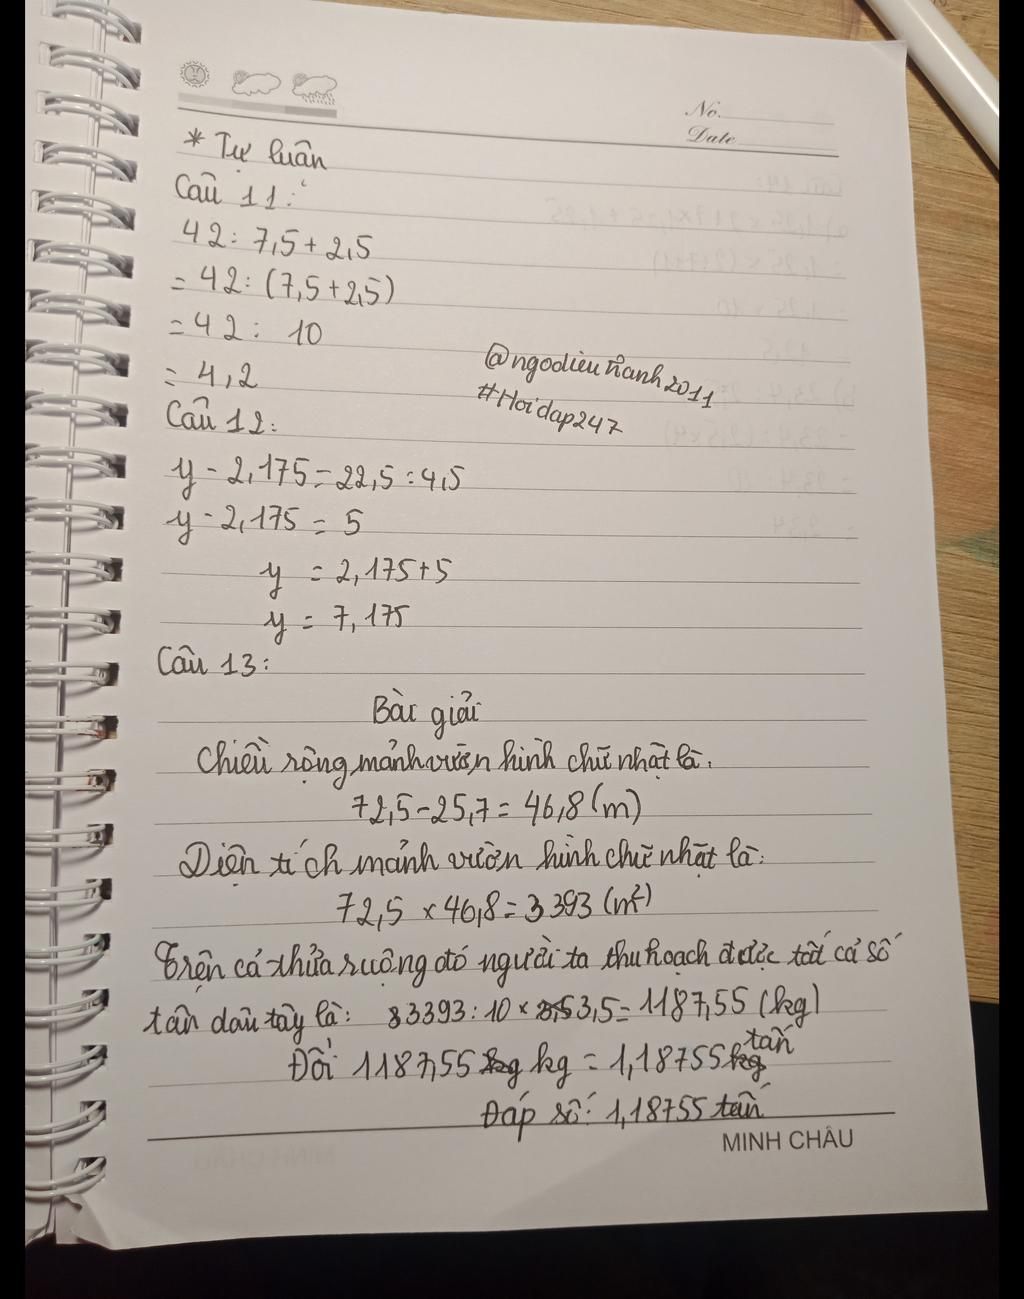 No.
Date
* Tự luận
Câu 11:
42: 7,5 + 2,5
= 42: (7,5 + 2,5)
= 42: 10
= 4,2
@ngodieulinh2011
#Hoidap247
Câu 12:
y - 2,175 = 22,5 : 4,5
y - 2,175 = 5
y = 2,175 + 5
y = 7,175
Câu 13:
Bài giải
Chiều rộng mảnh vườn hình chữ nhật là:
72,5 - 25,7 = 46,8 (m)
Diện tích mảnh vườn hình chữ nhật là:
72,5 × 46,8 = 3393 (m²)
Trên cả thửa ruộng đó người ta thu hoạch được tất cả số
tấn dâu tây là: 3393 : 10 × 3,5 = 1187,55 (kg)
Đổi 1187,55 kg = 1,18755 tấn
Đáp số: 1,18755 tấn
MINH CHÂU